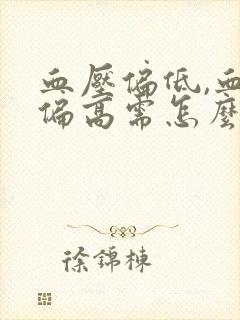 血壓偏低,血
偏高需怎麼
徐錦棟